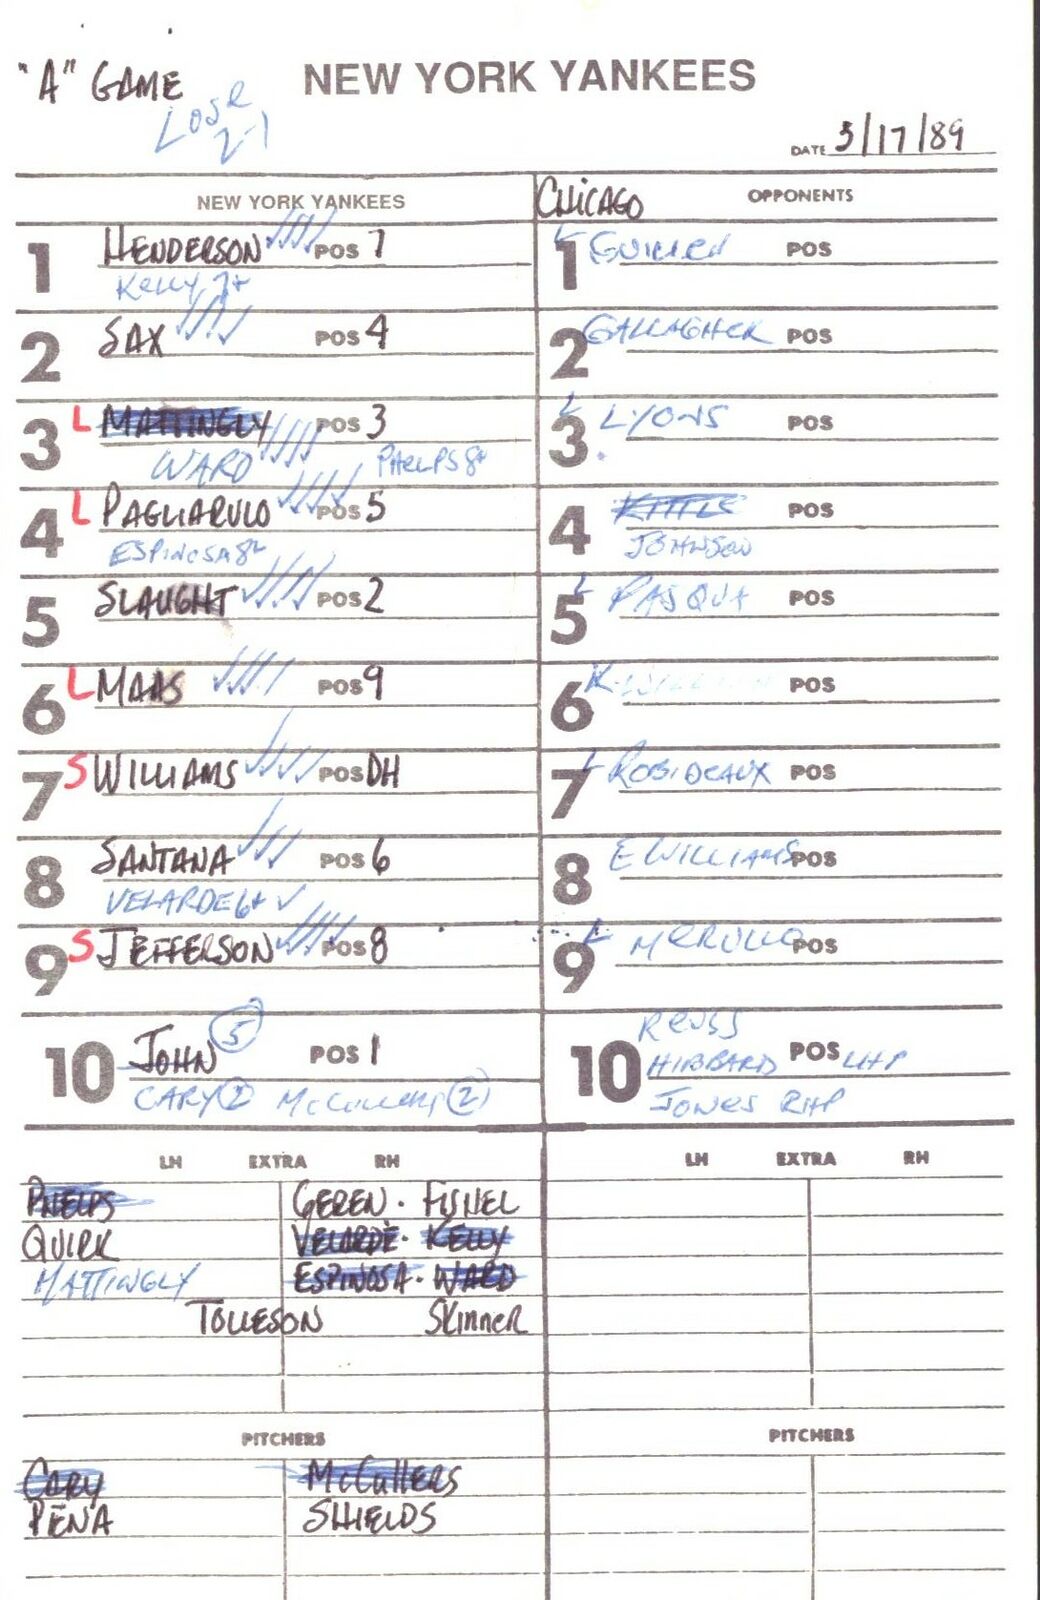 "A" GAME NEW YORK YANKEES
LOSE
2-1
DATE 3/17/89
NEW YORK YANKEES CHICAGO OPPONENTS
1 HENDERSON POS 7
KELLY 7+
2 SAX POS 4
3 L MATTINGLY POS 3
WARD PHELPS 8+
4 L PAGLIARULO POS 5
ESPINOSA 8+
5 SLAUGHT POS 2
6 L MAAS POS 9
7 S WILLIAMS POS DH
8 SANTANA POS 6
VELARDE 6+
9 S JEFFERSON POS 8
10 JOHN 5 POS 1
CARY 2 McCULLERS 2
L 1 GUILLEN POS
2 GALLAGHER POS
L 3 LYONS POS
4 KITTLE POS
JOHNSON
L 5 PASQUA POS
6 K-WILLIAMS POS
L 7 ROBIDEAUX POS
8 E WILLIAMS POS
L 9 MERULLO POS
REUSS
10 HIBBARD POS LHP
JONES RHP
LH EXTRA RH
PHELPS GEREN · FISHEL
QUIRK VELARDE · KELLY
MATTINGLY ESPINOSA · WARD
TOLLESON SKINNER
LH EXTRA RH
PITCHERS
CARY McCULLERS
PENA SHIELDS
PITCHERS